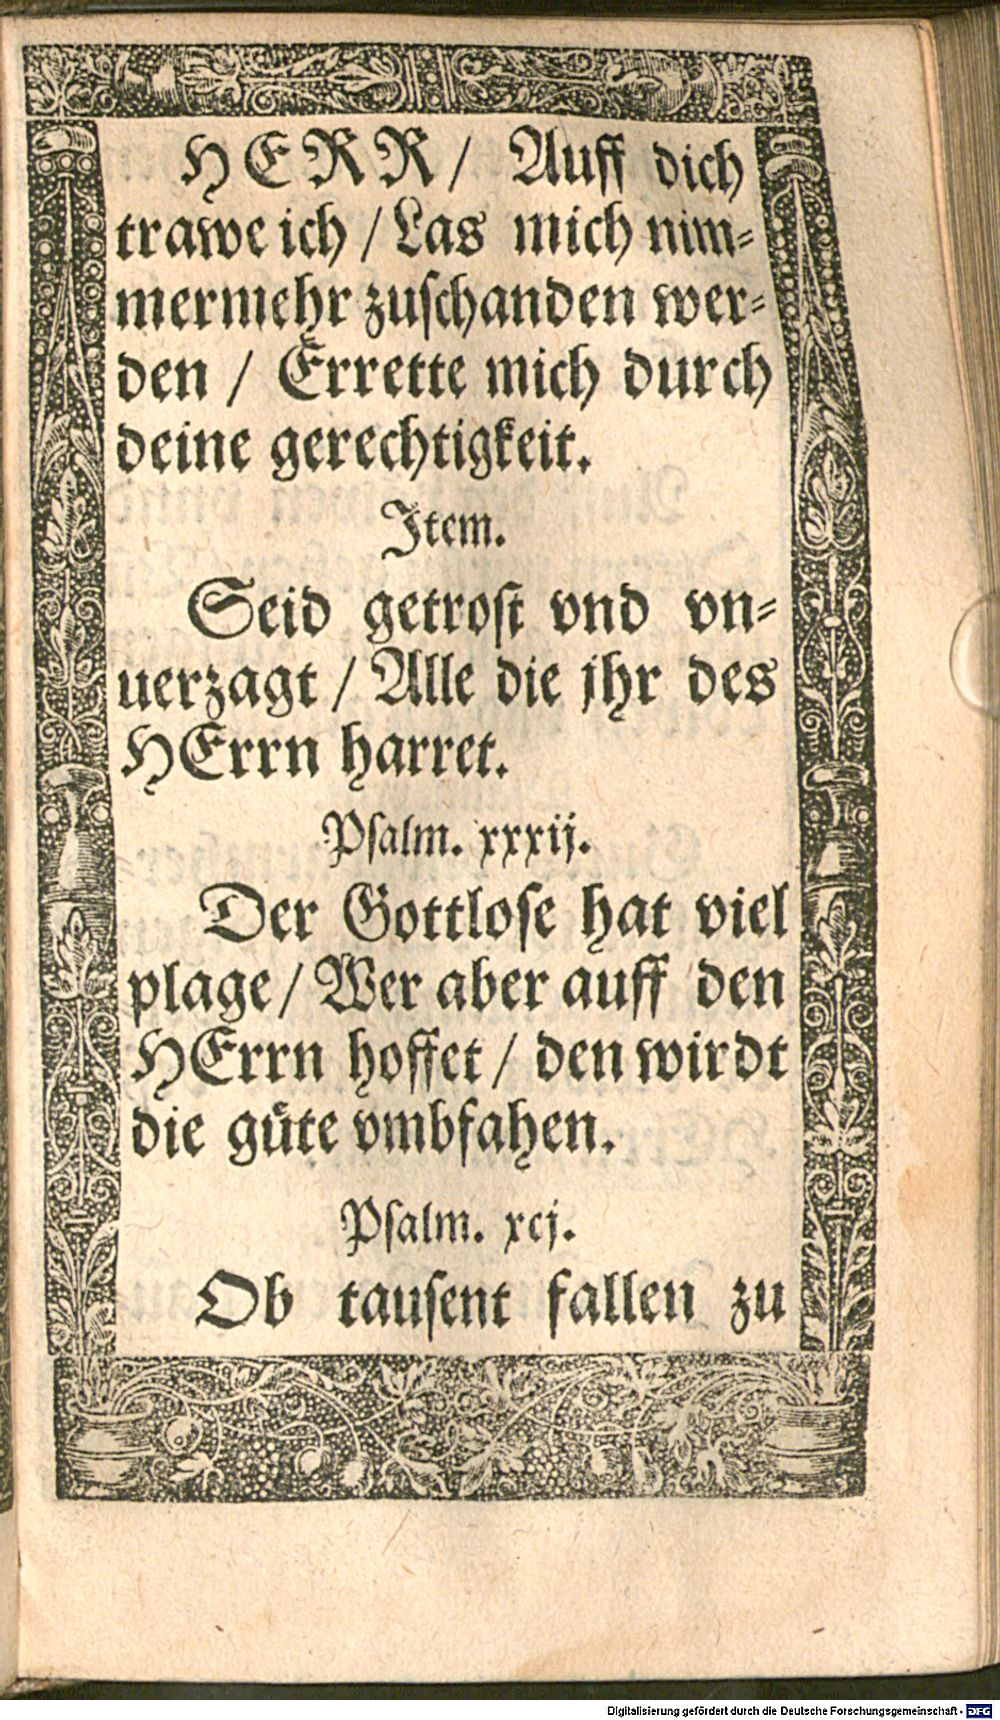 HERR / Auff dich
trawe ich / Las mich nim⸗
mermehr zuschanden wer⸗
den / Errette mich durch
deine gerechtigkeit.
Item.
Seid getrost vnd vn⸗
uerzagt / Alle die jhr des
HErrn harret.
Psalm. xxxij.
Der Gottlose hat viel
plage / Wer aber auff den
HErrn hoffet / den wirdt
die guͤte vmbfahen.
Psalm. xcj.
Ob tausent fallen zu
Digitalisierung gefördert durch die Deutsche Forschungsgemeinschaft - DFG